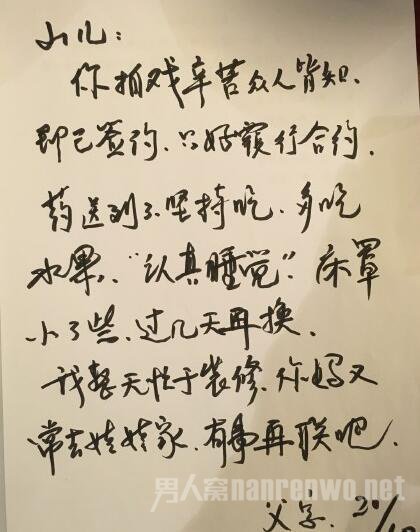 山儿：
你拍戏辛苦众人皆知，
即已签约，只好履行合约，
药送到了坚持吃，多吃
水果，“认真睡觉”。床罩
小了些，过几天再换，
我整天忙于装修，你妈又
常去娃娃家，有事再联吧，
父字 20/10
男人窝nanrenwo.net